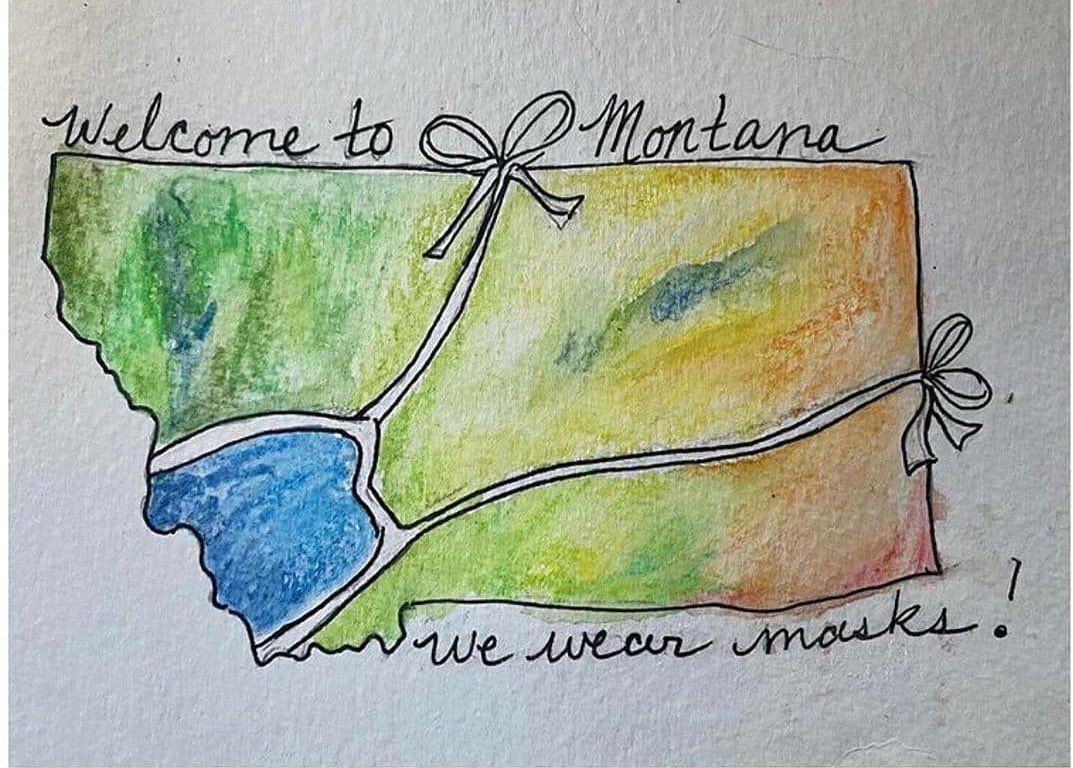 Welcome to Montana
We wear masks!